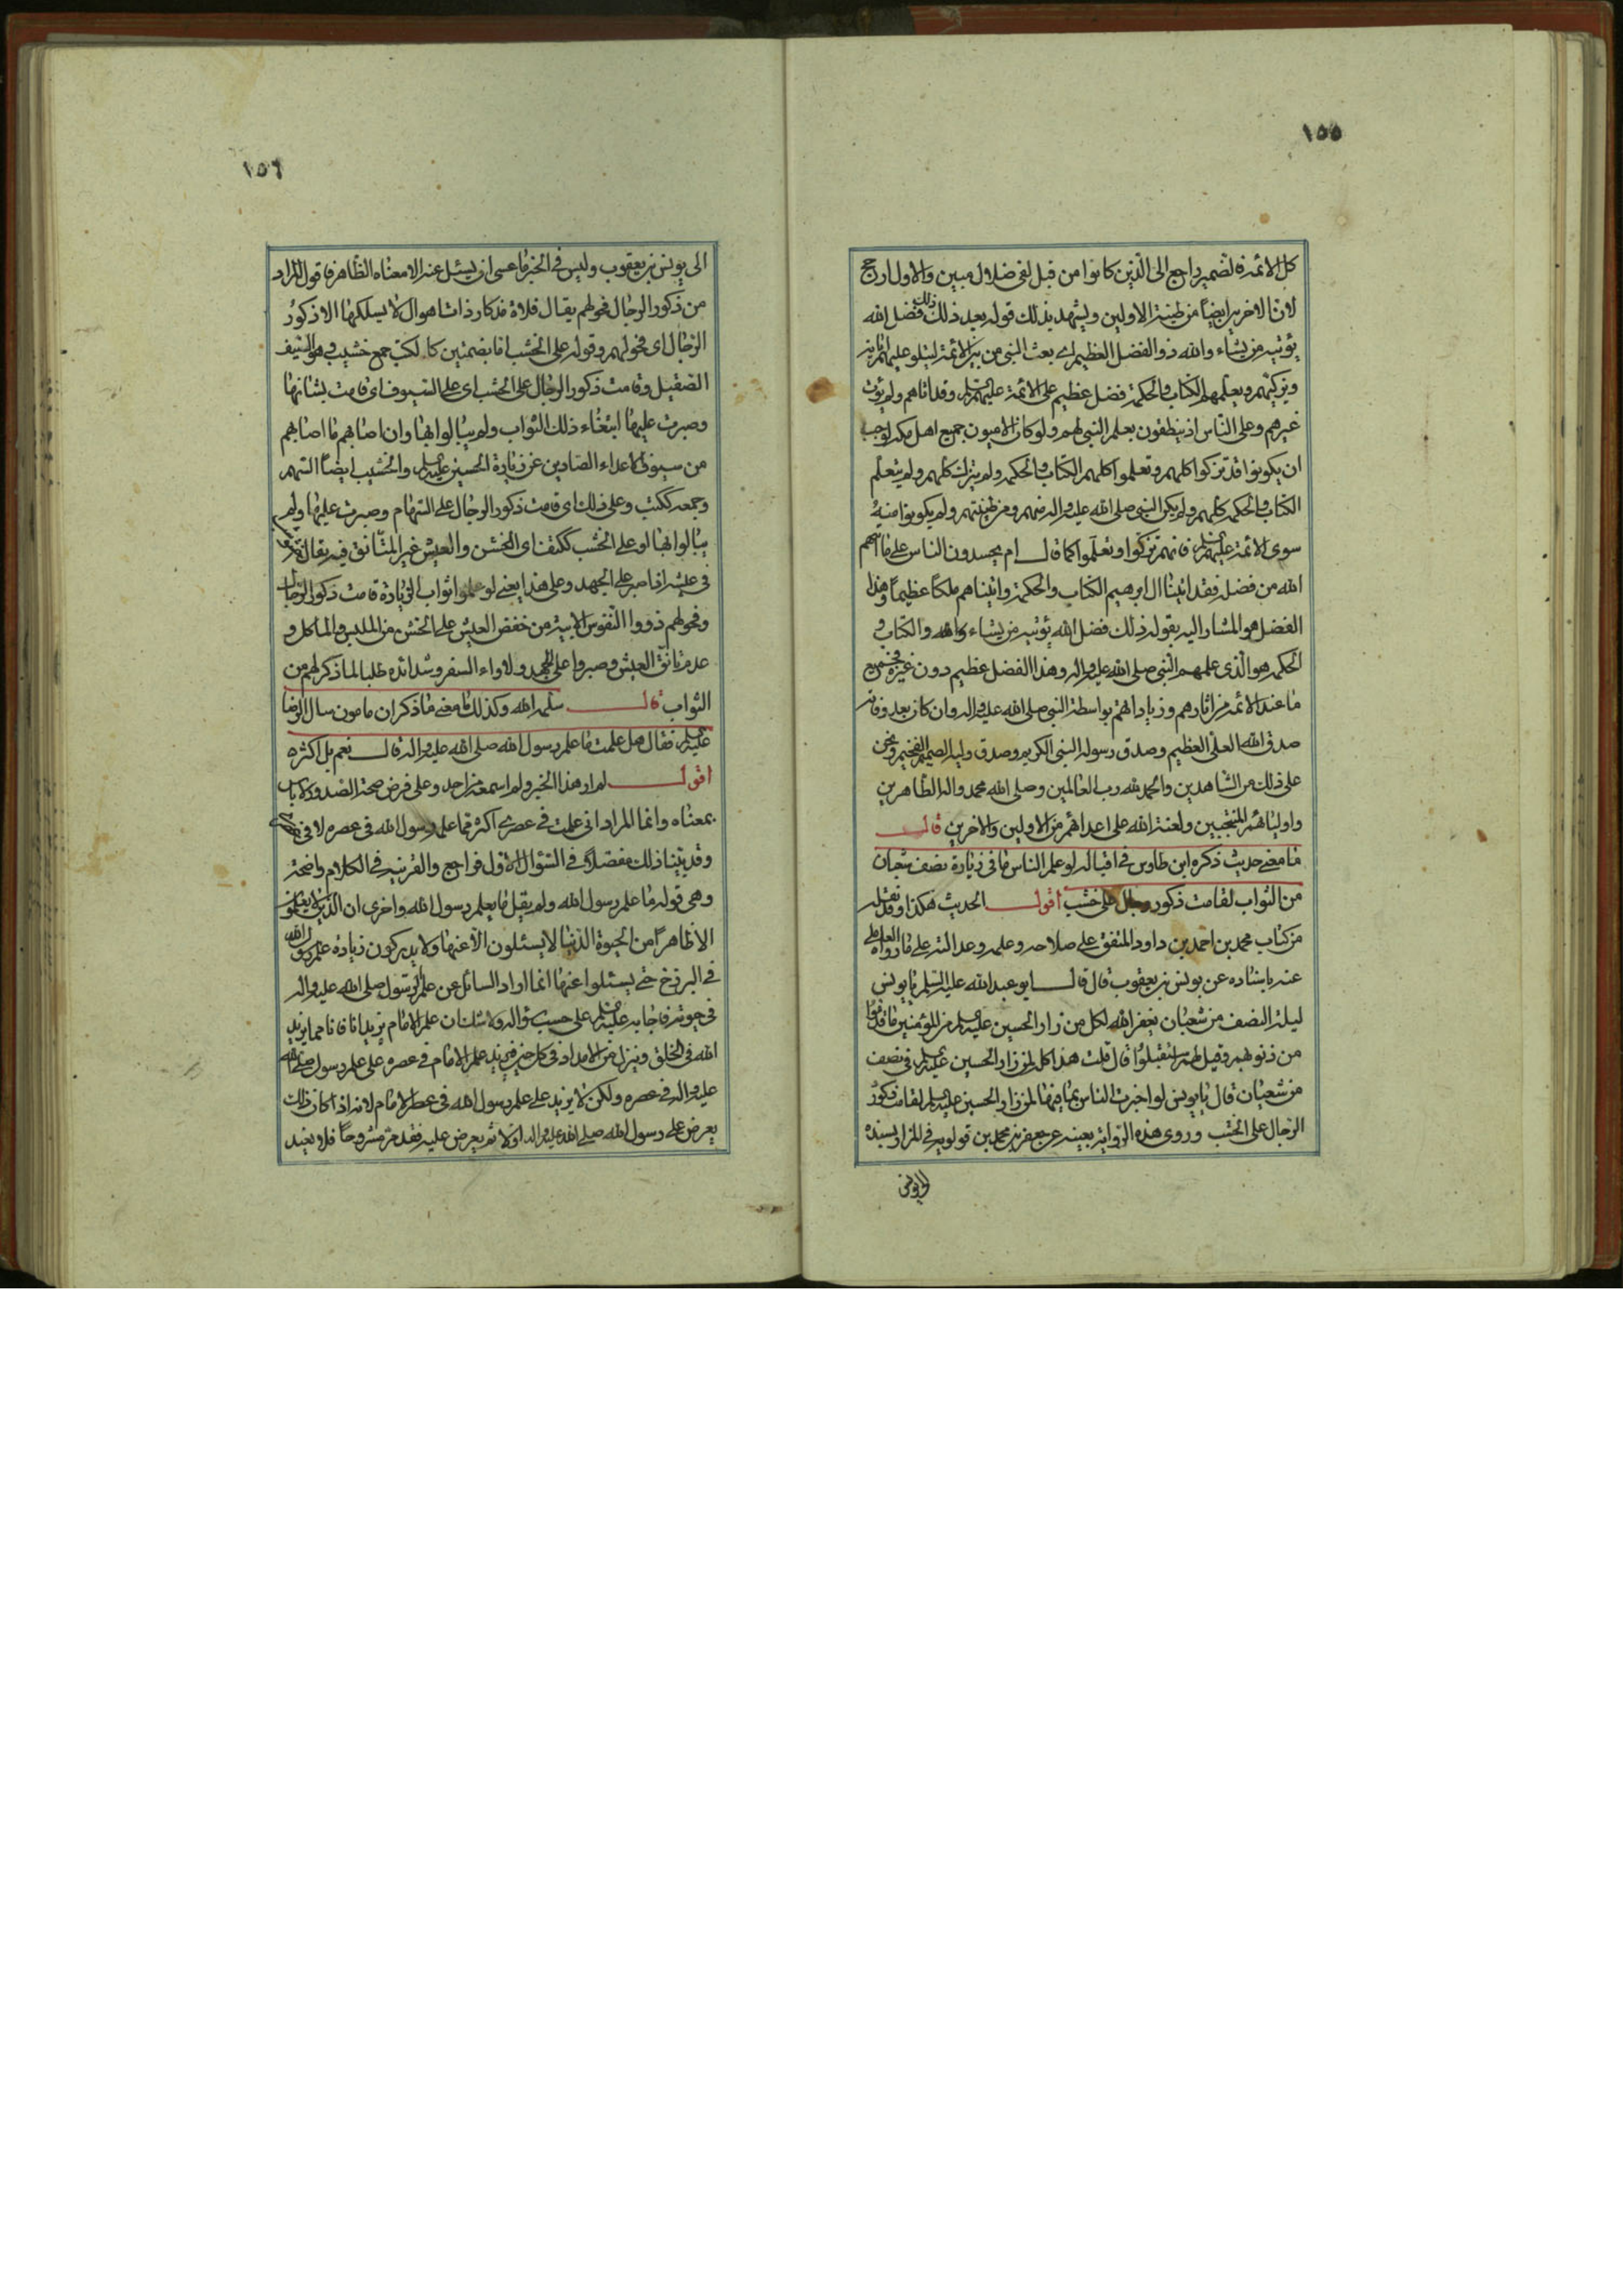 ١٥٥
كل الائمة فالضمير راجع الى الذين كانوا من قبل لفي ضلال مبين والاول ارجح
لان الاخرين ايضاً من طينة الاولين ويشهد بذلك قوله بعد ذلك ذلك فضل الله
يؤتيه من يشاء والله ذو الفضل العظيم اي بعث النبي من بين الائمة ليتلو عليهم اياته
ويزكيهم ويعلمهم الكتاب والحكمة فضل عظيم على الائمة عليهم السلم وقد اتاهم ولم يؤت
غيرهم وعلى الناس اذ ينطقون بعلم النبي لهم ولو كان الاميون جميع اهل مكة لوجب
ان يكونوا قد تزكوا كلهم وتعلموا كلهم الكتاب والحكمة ولم يتزك كلهم ولم يتعلم
الكتاب والحكمة كلهم ولم يكن النبي صلى الله عليه واله منهم ومن طينتهم ولم يكونوا منه
سوى الائمة عليهم السلم فانهم تزكوا وتعلموا كما قال ام يحسدون الناس على ما اتيهم
الله من فضله فقد اتينا ال ابرهيم الكتاب والحكمة واتيناهم ملكاً عظيماً وهذا
الفضل هو المشار اليه بقوله ذلك فضل الله يؤتيه من يشاء والله والكتاب و
الحكمة هو الذي علمهم النبي صلى الله عليه واله وهذا الفضل عظيم دون غيره فجميع
ما عند الائمة من اثارهم وزياداتهم بواسطة النبي صلى الله عليه واله وان كان بعد وفاته
صدق الله العلي العظيم وصدق رسوله النبي الكريم وصدق وليه الصميم الفخيم ونحن
على ذلك من الشاهدين والحمد لله رب العالمين وصلى الله محمد واله الطاهرين
واوليائهم المنتجبين ولعنة الله على اعدائهم من الاولين والاخرين قال
ما معنى حديث ذكره ابن طاوس في اقباله لو علم الناس ما في زيارة نصف شعبان
من الثواب لقامت ذكور رجال على خشب اقول الحديث هكذا وقد نقله
من كتاب محمد بن احمد بن داود المتفق على صلاحه وعلمه وعدالته على ما رواه
عنه باسناده عن يونس بن يعقوب قال قال ابو عبدالله عليه السلم يا يونس
ليلة النصف من شعبان يغفر الله لكل من زار الحسين عليه السلم من المؤمنين ما قدموا
من ذنوبهم وقيل لهم استقبلوا قال قلت هذا كله لمن زار الحسين عليه السلم في نصف
من شعبان قال يا يونس لو اخبرت الناس بما فيها لمن زار الحسين عليه السلم لقامت ذكور
الرجال على الخشب وروى هذه الرواية بعينه عن جعفر بن محمد بن قولويه في المزار بسنده
الى يونس
١٥٦
الى يونس بن يعقوب وليس في الخبر ما عسى ان يسئل عنه الا معناه الظاهر فاقول المراد
من ذكور الرجال فحولهم يقال فلاة مذكار ذات اهوال لا يسلكها الا ذكور
الرجال اي فحولهم وقوله على الخشب اما بضمتين كالكتب جمع خشيب وهو السيف
الصقيل وقامت ذكور الرجال على الخشب اي على السيوف اي قامت بشانها
وصبرت عليها ابتغاء ذلك الثواب ولم يبالوا بها وان اصابهم ما اصابهم
من سيوف الاعداء الصادين عن زيارة الحسين عليه السلم والخشيب ايضاً السهم
وجمعه ككتب وعلى ذلك اي قامت ذكور الرجال على السهام وصبرت عليها ولم
يبالوا بها او على الخشب ككتف اي الخشن والعيش غير المتانق فيه يقال
في عيشه اذا صبر على الجهد وعلى هذا يعني لو علموا ثواب الزيارة قامت ذكور الرجال
وفحولهم ذووا النفوس الابية من خفض العيش على الخشن من الملبس والماكل و
عدم تانق العيش وصبروا على الجهد ولاواء السفر وشدائده طلبا لما ذكر لهم من
الثواب قال سلمه الله وكذلك ما معنى ما ذكر ان مامون سال الرضا
عليه السلم فقال هل علمت ما علم رسول الله صلى الله عليه واله قال نعم بل اكثره
اقول لم ار هذا الخبر ولم اسمعه من احد وعلى فرض صحة الصدور لا باس
بمعناه وانما المراد اني علمت في عصري اكثر مما علم رسول الله في عصره لا في
وقد بينا ذلك مفصلاً في السؤال الاول فراجع والقرينة في الكلام واضحة
وهي قوله ما علم رسول الله ولم يقل ما يعلم رسول الله واخرى ان الذين لا يعلمون
الا ظاهراً من الحيوة الدنيا لا يسئلون الا عنها ولا يدركون زيادة علم رسول الله
في البرزخ حتى يسئلوا عنها انما اراد السائل عن علم الرسول صلى الله عليه واله
في حيوته فاجابه عليه السلم على حسب سؤاله ولا شك ان علم الامام يزيد انا فانا مما يزيد
الله في الخلق وينزل من الامداد في كل حين فيزيد علم الامام في عصره على علم رسول الله صلى الله
عليه واله في عصره ولكن لا يزيد على علم رسول الله في عصر الامام لانه اذا كان ذلك
يعرض على رسول الله صلى الله عليه واله اولا ثم يعرض عليه فقد مر مشروحاً فلا نعيد